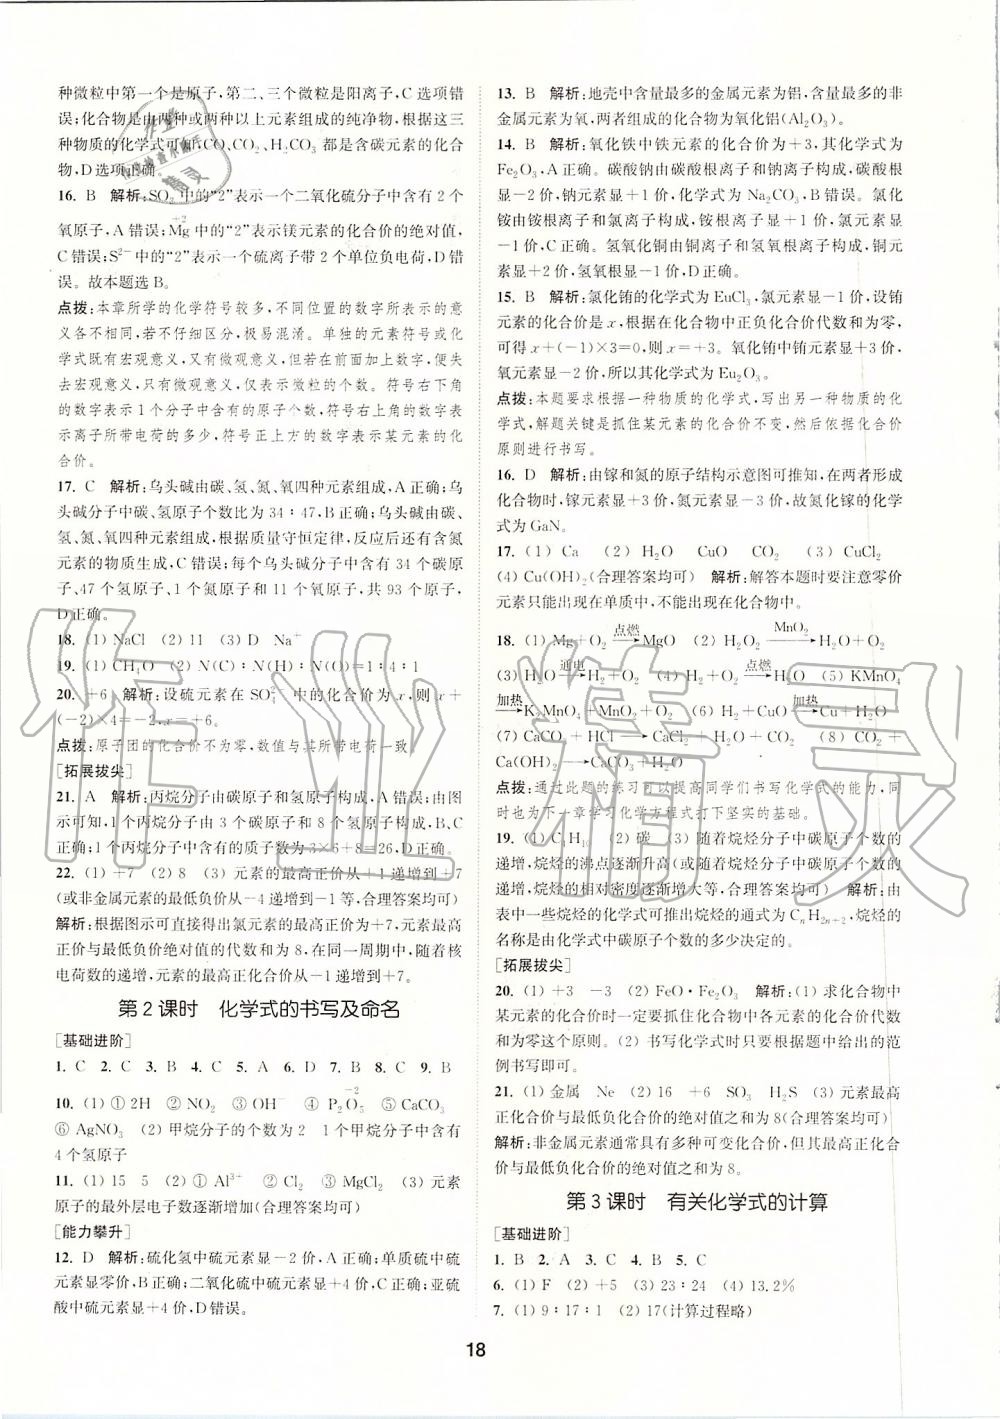 种微粒中第一个是原子,第二、三个微粒是阳离子,C选项错
误;化合物是由两种或两种以上元素组成的纯净物,根据这三
种物质的化学式可知CO、CO₂、H₂CO₃都是含碳元素的化合
物,D选项正确。
16. B 解析:SO₂中的“2”表示一个二氧化硫分子中含有2个
氧原子,A错误;Mg(+2)中的“2”表示镁元素的化合价的绝对值,
C错误;S²⁻中的“2”表示一个硫离子带2个单位负电荷,D错
误。故本题选B。
点拨:本章所学的化学符号较多,不同位置的数字所表示的意
义各不相同,若不仔细区分,极易混淆。单独的元素符号或化
学式既有宏观意义,又有微观意义,但若在前面加上数字,便失
去宏观意义,只有微观意义,仅表示微粒的个数。符号右下角
的数字表示1个分子中含有的原子个数,符号右上角的数字表
示离子所带电荷的多少,符号正上方的数字表示某元素的化
合价。
17. C 解析:乌头碱由碳、氢、氮、氧四种元素组成,A正确;乌
头碱分子中碳、氢原子个数比为34∶47,B正确;乌头碱由碳、
氢、氮、氧四种元素组成,根据质量守恒定律,反应后还有含氮
元素的物质生成,C错误;每个乌头碱分子中含有34个碳原
子、47个氢原子、1个氮原子和11个氧原子,共93个原子,
D正确。
18. (1) NaCl (2) 11 (3) D Na⁺
19. (1) CH₄O (2) N(C)∶N(H)∶N(O)=1∶4∶1
20. +6 解析:设硫元素在SO₄²⁻中的化合价为x,则x+
(-2)×4=-2,x=+6。
点拨:原子团的化合价不为零,数值与其所带电荷一致。
[拓展拔尖]
21. A 解析:丙烷分子由碳原子和氢原子构成,A错误;由图
示可知,1个丙烷分子由3个碳原子和8个氢原子构成,B、C
正确;1个丙烷分子中含有的质子数为3×6+8=26,D正确。
22. (1) +7 (2) 8 (3) 元素的最高正价从+1递增到+7
(或非金属元素的最低负价从-4递增到-1等,合理答案均可)
解析:根据图示可直接得出氯元素的最高正价为+7,元素最高
正价与最低负价绝对值的代数和为8,在同一周期中,随着核
电荷数的递增,元素的最高正化合价从+1递增到+7。
第2课时 化学式的书写及命名
[基础进阶]
1. C 2. C 3. B 4. C 5. A 6. D 7. B 8. C 9. B
10. (1) ① 2H ② NO₂ ③ OH⁻ ④ P₂O₅(-2) ⑤ CaCO₃
⑥ AgNO₃ (2) 甲烷分子的个数为2 1个甲烷分子中含有
4个氢原子
11. (1) 15 5 (2) ① Al³⁺ ② Cl₂ ③ MgCl₂ (3) 元素
原子的最外层电子数逐渐增加(合理答案均可)
[能力攀升]
12. D 解析:硫化氢中硫元素显-2价,A正确;单质硫中硫
元素显零价,B正确;二氧化硫中硫元素显+4价,C正确;亚硫
酸中硫元素显+4价,D错误。
13. B 解析:地壳中含量最多的金属元素为铝,含量最多的非
金属元素为氧,两者组成的化合物为氧化铝(Al₂O₃)。
14. B 解析:氧化铁中铁元素的化合价为+3,其化学式为
Fe₂O₃,A正确。碳酸钠由碳酸根离子和钠离子构成,碳酸根
显-2价,钠元素显+1价,化学式为Na₂CO₃,B错误。氯化
铵由铵根离子和氯离子构成,铵根离子显+1价,氯元素显
-1价,C正确。氢氧化铜由铜离子和氢氧根离子构成,铜元
素显+2价,氢氧根显-1价,D正确。
15. B 解析:氯化铕的化学式为EuCl₃,氯元素显-1价,设铕
元素的化合价是x,根据在化合物中正负化合价代数和为零,
可得x+(-1)×3=0,则x=+3。氧化铕中铕元素显+3价,
氧元素显-2价,所以其化学式为Eu₂O₃。
点拨:本题要求根据一种物质的化学式,写出另一种物质的化
学式,解题关键是抓住某元素的化合价不变,然后依据化合价
原则进行书写。
16. D 解析:由镓和氮的原子结构示意图可推知,在两者形成
化合物时,镓元素显+3价,氮元素显-3价,故氮化镓的化学
式为GaN。
17. (1) Ca (2) H₂O CuO CO₂ (3) CuCl₂
(4) Cu(OH)₂(合理答案均可) 解析:解答本题时要注意零价
元素只能出现在单质中,不能出现在化合物中。
18. (1) Mg+O₂ —点燃→ MgO (2) H₂O₂ —MnO₂→ H₂O+O₂
(3) H₂O —通电→ H₂+O₂ (4) H₂+O₂ —点燃→ H₂O (5) KMnO₄
—加热→ K₂MnO₄+MnO₂+O₂ (6) H₂+CuO —加热→ Cu+H₂O
(7) CaCO₃+HCl → CaCl₂+H₂O+CO₂ (8) CO₂+
Ca(OH)₂ → CaCO₃+H₂O
点拨:通过此题的练习可以提高同学们书写化学式的能力,同
时也为下一章学习化学方程式打下坚实的基础。
19. (1) C₄H₁₀ (2) 碳 (3) 随着烷烃分子中碳原子个数的
递增,烷烃的沸点逐渐升高(或随着烷烃分子中碳原子个数的
递增,烷烃的相对密度逐渐增大等,合理答案均可) 解析:由
表中一些烷烃的化学式可推出烷烃的通式为CₙH₂ₙ₊₂,烷烃的
名称是由化学式中碳原子个数的多少决定的。
[拓展拔尖]
20. (1) +3 -3 (2) FeO·Fe₂O₃ 解析:(1) 求化合物中
某元素的化合价时一定要抓住化合物中各元素的化合价代数
和为零这个原则。(2) 书写化学式时只要根据题中给出的范
例书写即可。
21. (1) 金属 Ne (2) 16 +6 SO₃ H₂S (3) 元素最高
正化合价与最低负化合价的绝对值之和为8(合理答案均可)
解析:非金属元素通常具有多种可变化合价,但其最高正化合
价与最低负化合价的绝对值之和为8。
第3课时 有关化学式的计算
[基础进阶]
1. B 2. A 3. C 4. C 5. C
6. (1) F (2) +5 (3) 23∶24 (4) 13.2%
7. (1) 9∶17∶1 (2) 17(计算过程略)
18
作业精灵